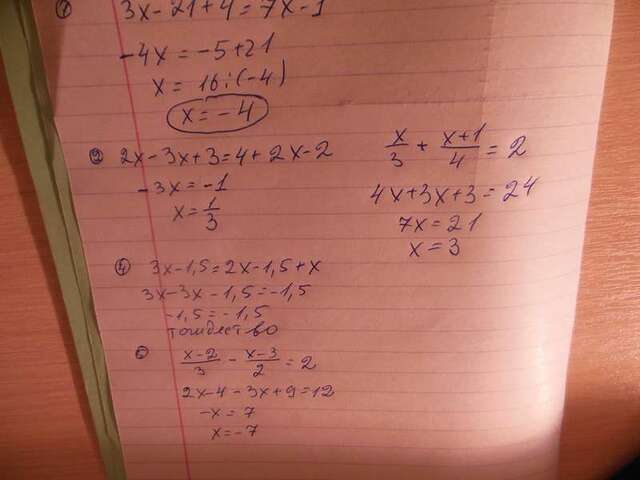 ① 3x-21+4=7x-1
-4x=-5+21
x=16:(-4)
x=-4
② 2x-3x+3=4+2x-2
-3x=-1
x=1/3
x/3+(x+1)/4=2
4x+3x+3=24
7x=21
x=3
④ 3x-1,5=2x-1,5+x
3x-3x-1,5=-1,5
-1,5=-1,5
тождество
⑤ (x-2)/3-(x-3)/2=2
2x-4-3x+9=12
-x=7
x=-7